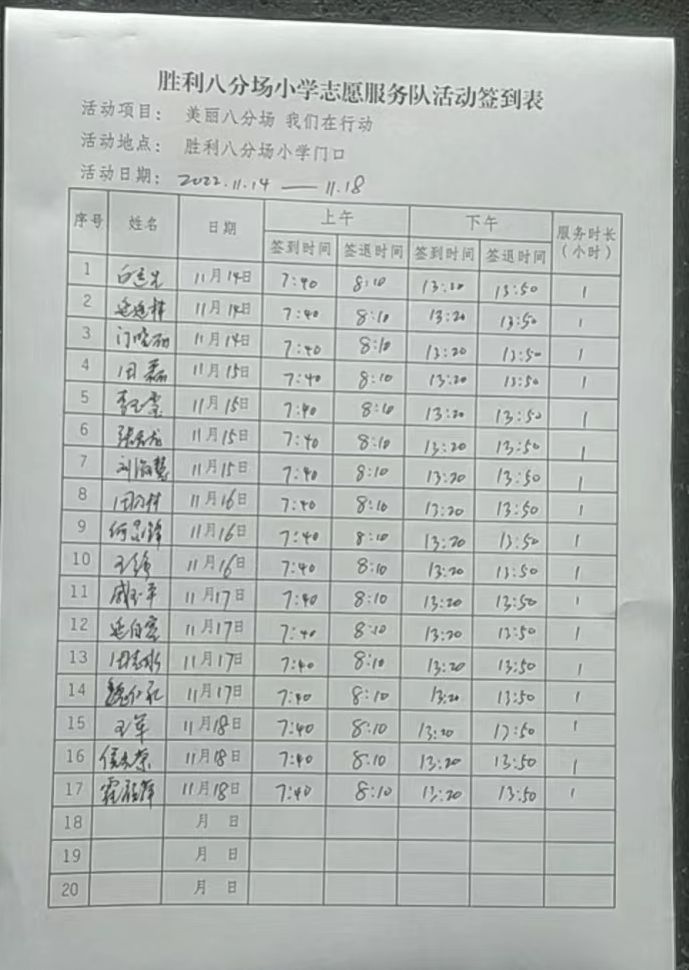 胜利八分场小学志愿服务队活动签到表
活动项目： 美丽八分场 我们在行动
活动地点： 胜利八分场小学门口
活动日期： 2022.11.14 —— 11.18
序号 姓名 日期 上午 下午 服务时长（小时）
签到时间 签退时间 签到时间 签退时间
1 11月14日 7:40 8:10 13:20 13:50 1
2 11月14日 7:40 8:10 13:20 13:50 1
3 门晓丽 11月14日 7:40 8:10 13:20 13:50 1
4 田磊 11月15日 7:40 8:10 13:20 13:50 1
5 11月15日 7:40 8:10 13:20 13:50 1
6 11月15日 7:40 8:10 13:20 13:50 1
7 刘海慧 11月15日 7:40 8:10 13:20 13:50 1
8 11月16日 7:40 8:10 13:20 13:50 1
9 11月16日 7:40 8:10 13:20 13:50 1
10 11月16日 7:40 8:10 13:20 13:50 1
11 11月17日 7:40 8:10 13:20 13:50 1
12 11月17日 7:40 8:10 13:20 13:50 1
13 田志水 11月17日 7:40 8:10 13:20 13:50 1
14 11月17日 7:40 8:10 13:20 13:50 1
15 王军 11月18日 7:40 8:10 13:20 17:50 1
16 11月18日 7:40 8:10 13:20 13:50 1
17 11月18日 7:40 8:10 13:20 13:50 1
18 月 日
19 月 日
20 月 日